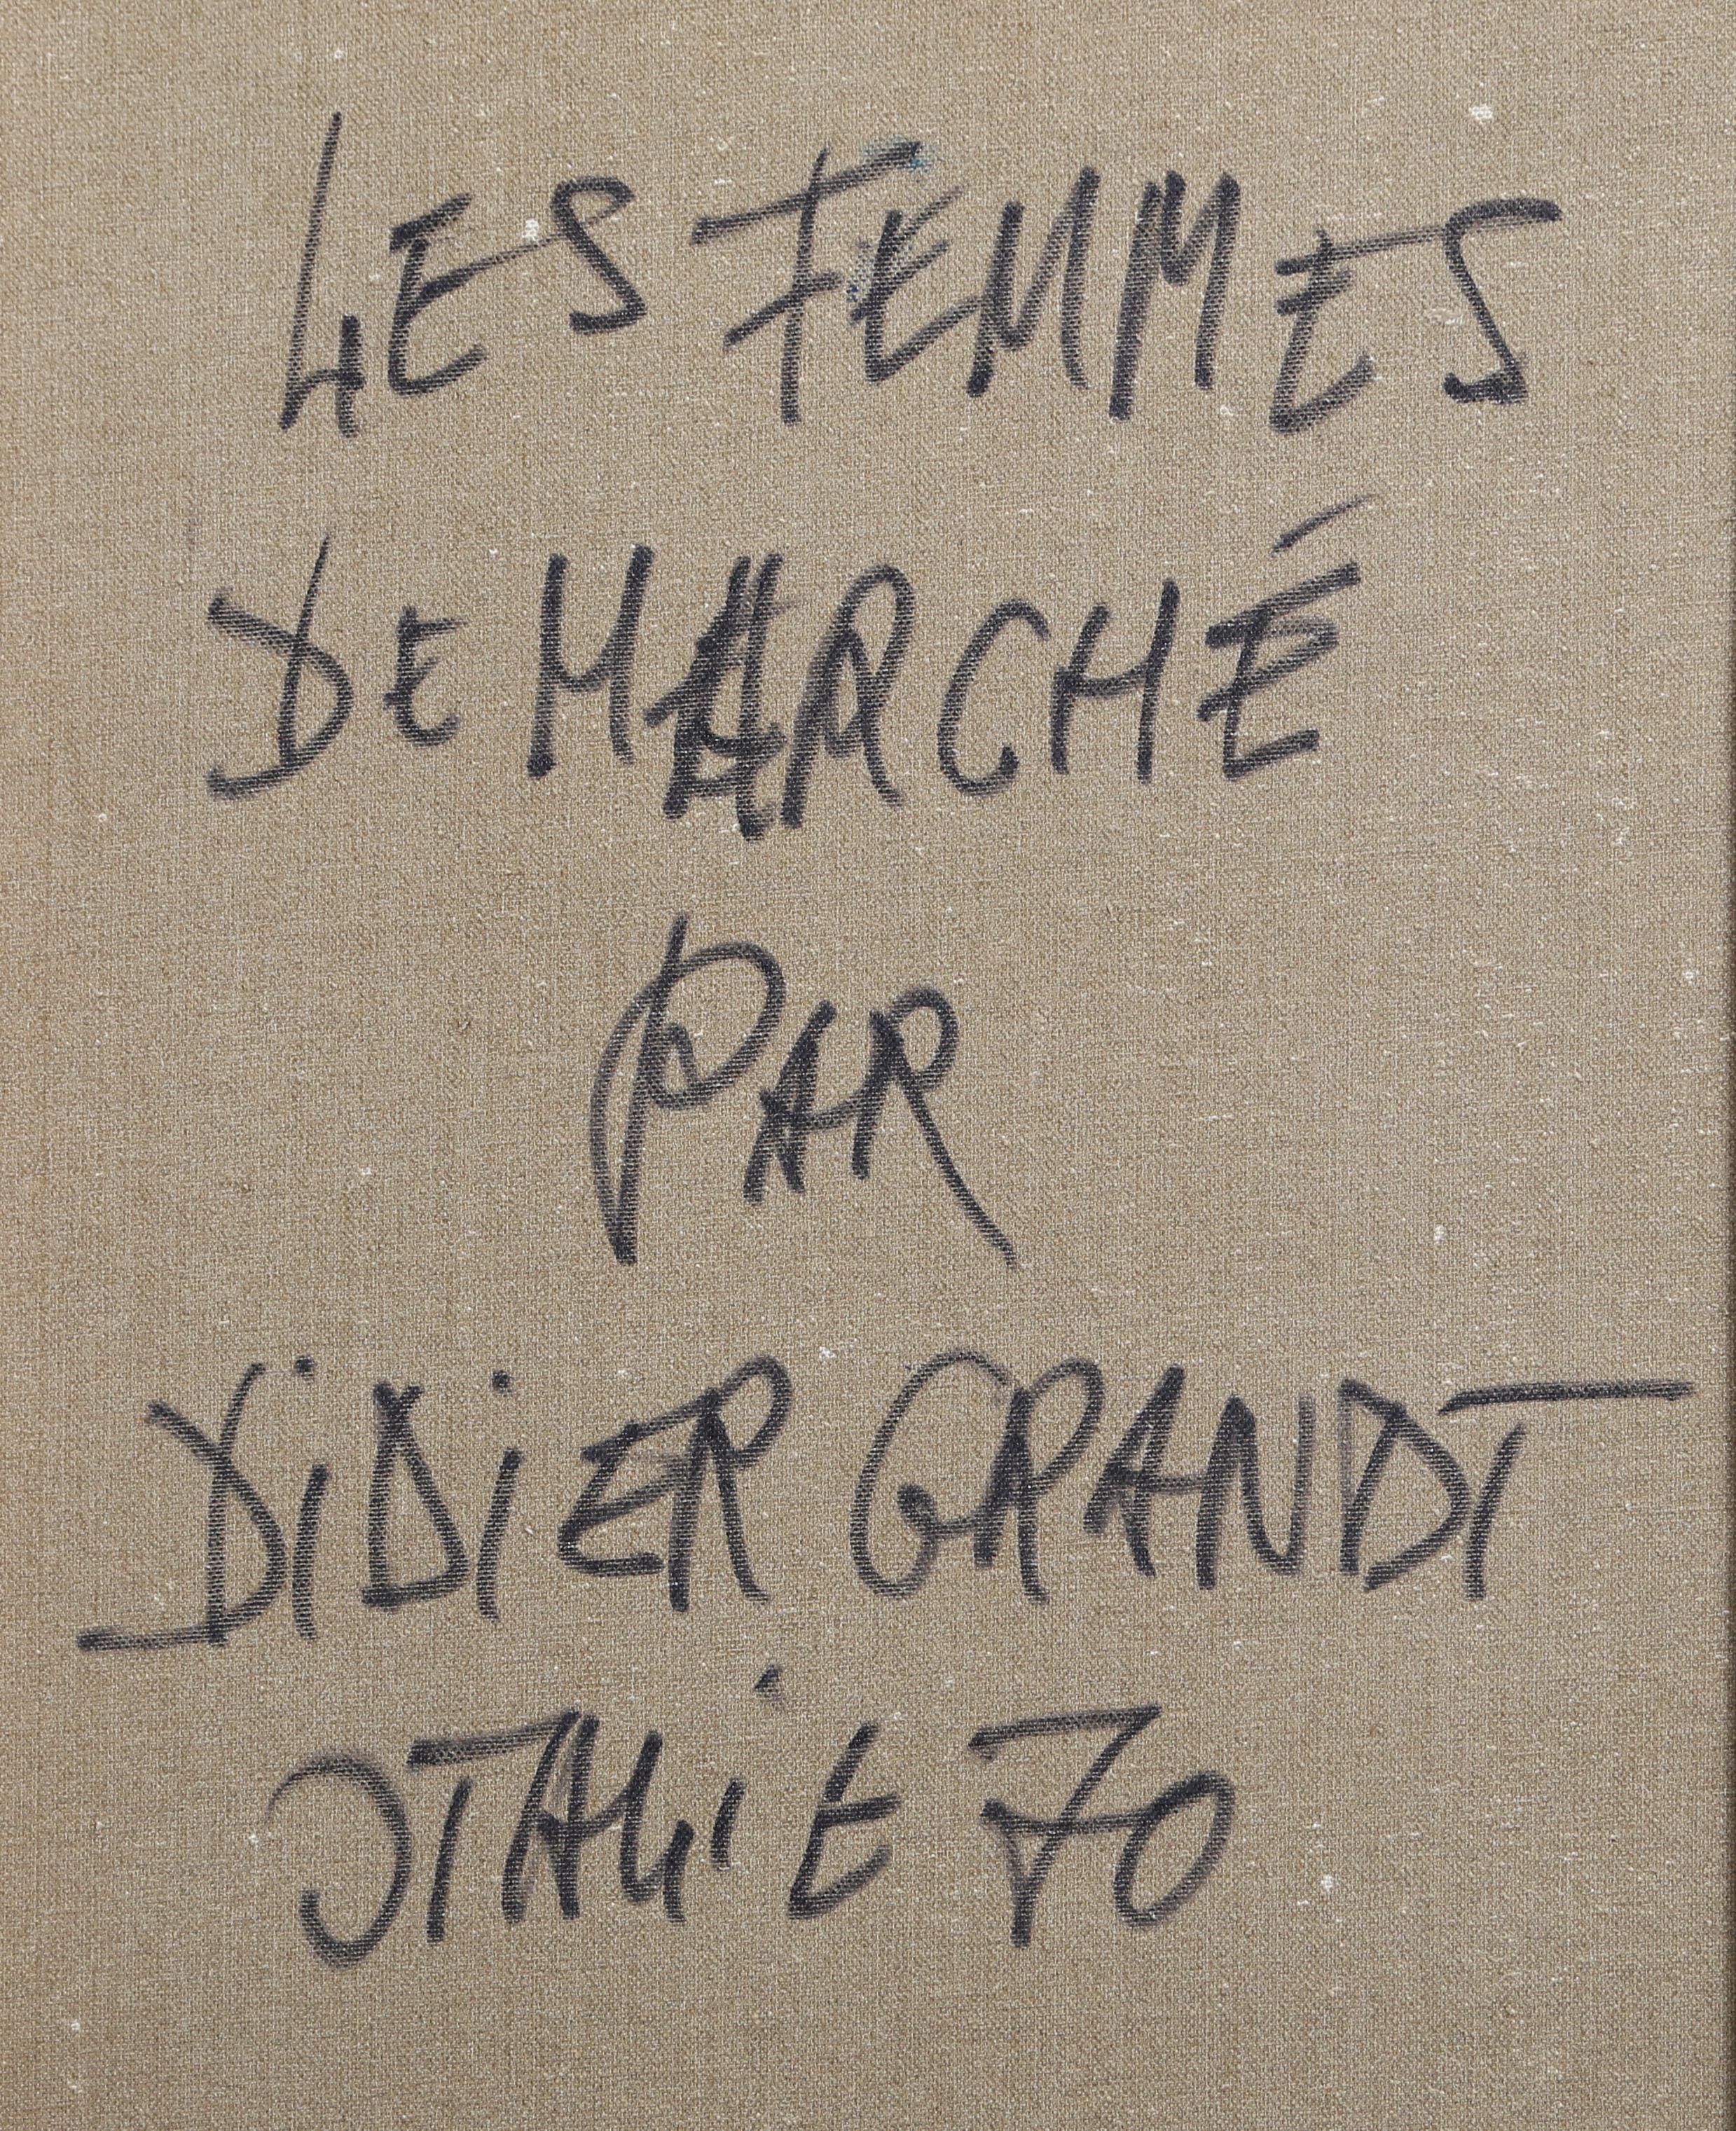 LES FEMMES
DE MARCHÉ
PAR
DiDiER GRANDT
ITALiE 70